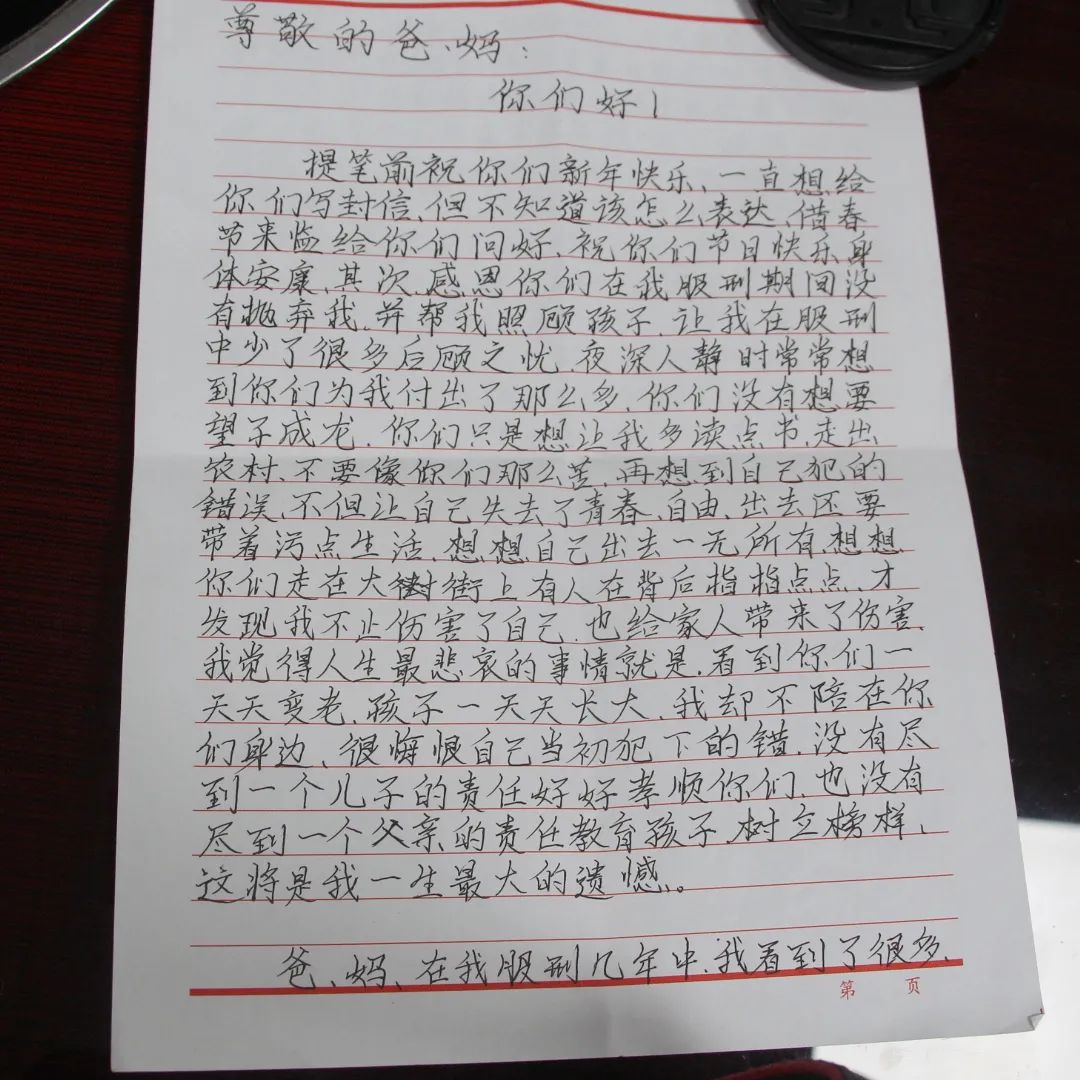 尊敬的爸、妈:
你们好!
提笔前祝你们新年快乐、一直想给
你们写封信、但不知道该怎么表达、借春
节来临给你们问好、祝你们节日快乐身
体安康、其次、感恩你们在我服刑期间没
有抛弃我、并帮我照顾孩子、让我在服刑
中少了很多后顾之忧、夜深人静时常常想
到你们为我付出了那么多、你们没有想要
望子成龙、你们只是想让我多读点书、走出
农村、不要像你们那么苦、再想到自己犯的
错误、不但让自己失去了青春、自由、出去还要
带着污点生活、想想自己出去一无所有、想想
你们走在大街上有人在背后指指点点、才
发现我不止伤害了自己、也给家人带来了伤害、
我觉得人生最悲哀的事情就是、看到你们一
天天变老、孩子一天天长大、我却不陪在你
们身边、很悔恨自己当初犯下的错、没有尽
到一个儿子的责任好好孝顺你们、也没有
尽到一个父亲的责任教育孩子、树立榜样、
这将是我一生最大的遗憾、。
爸、妈、在我服刑几年中、我看到了很多、
第 页